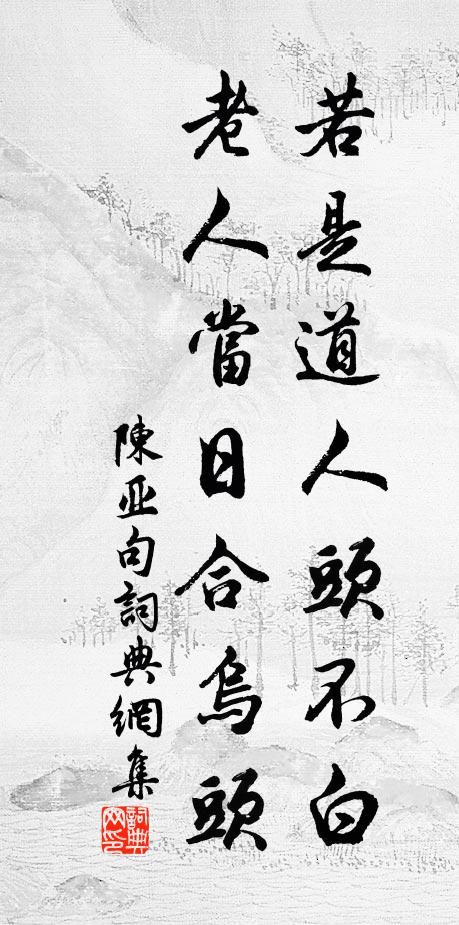 若是道人頭不白
老人當日合烏頭
陳亚句詞典網集
詞典網印